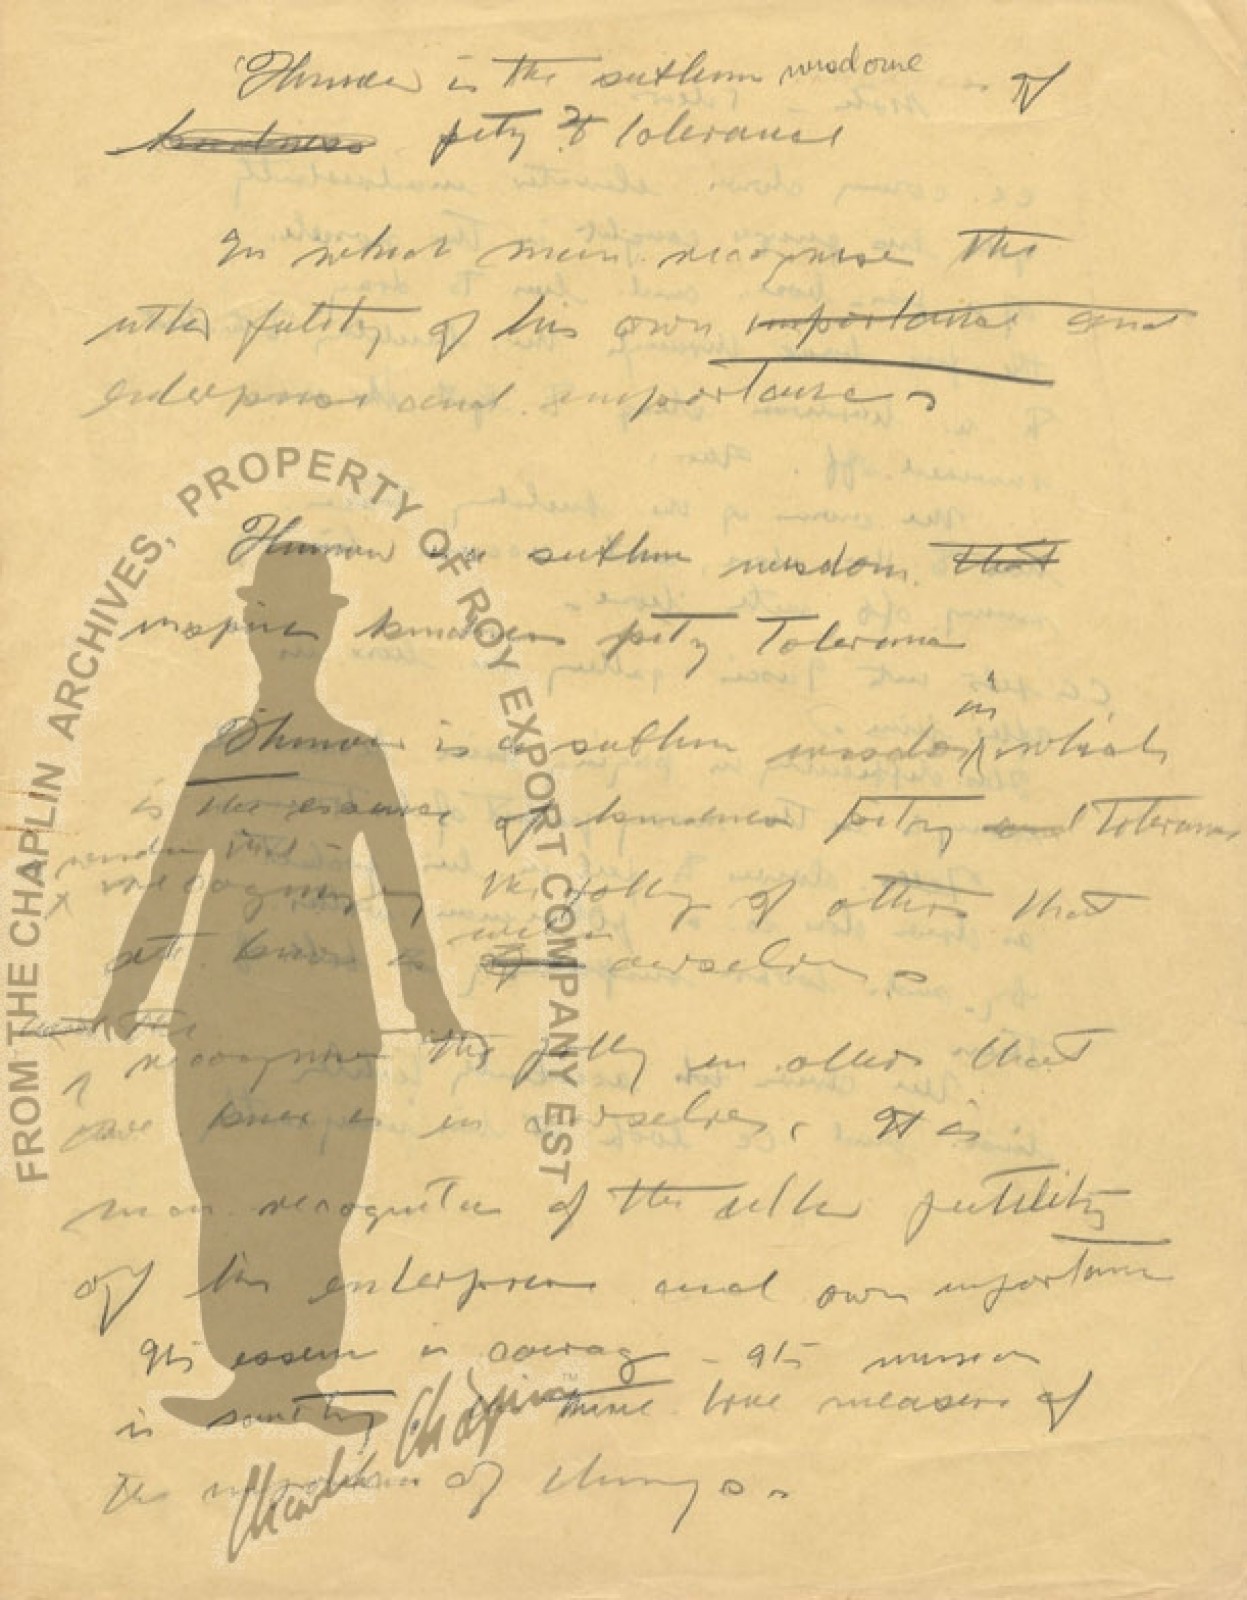 Humour is the suttlum wisdome of
kindness pity & tolerance
In which man recognise the
utter futility of his own importance and
enterprises and importance.
Humour is a suttlum wisdom that
inspires kindness pity Tolerance
Humour is a suttlum wisdom in which
is the essence of kindness pity and Tolerance
recognizing the folly of others that
of ourselves.
and the
recognise the folly in others that
knows in ourselves. It is
man recognition of the utter futility
of his enterprises and own importance
Its essence is courage - Its mission
is sanity the true measure of
the of things.
FROM THE CHAPLIN ARCHIVES, PROPERTY OF ROY EXPORT COMPANY EST
Charlie Chaplin